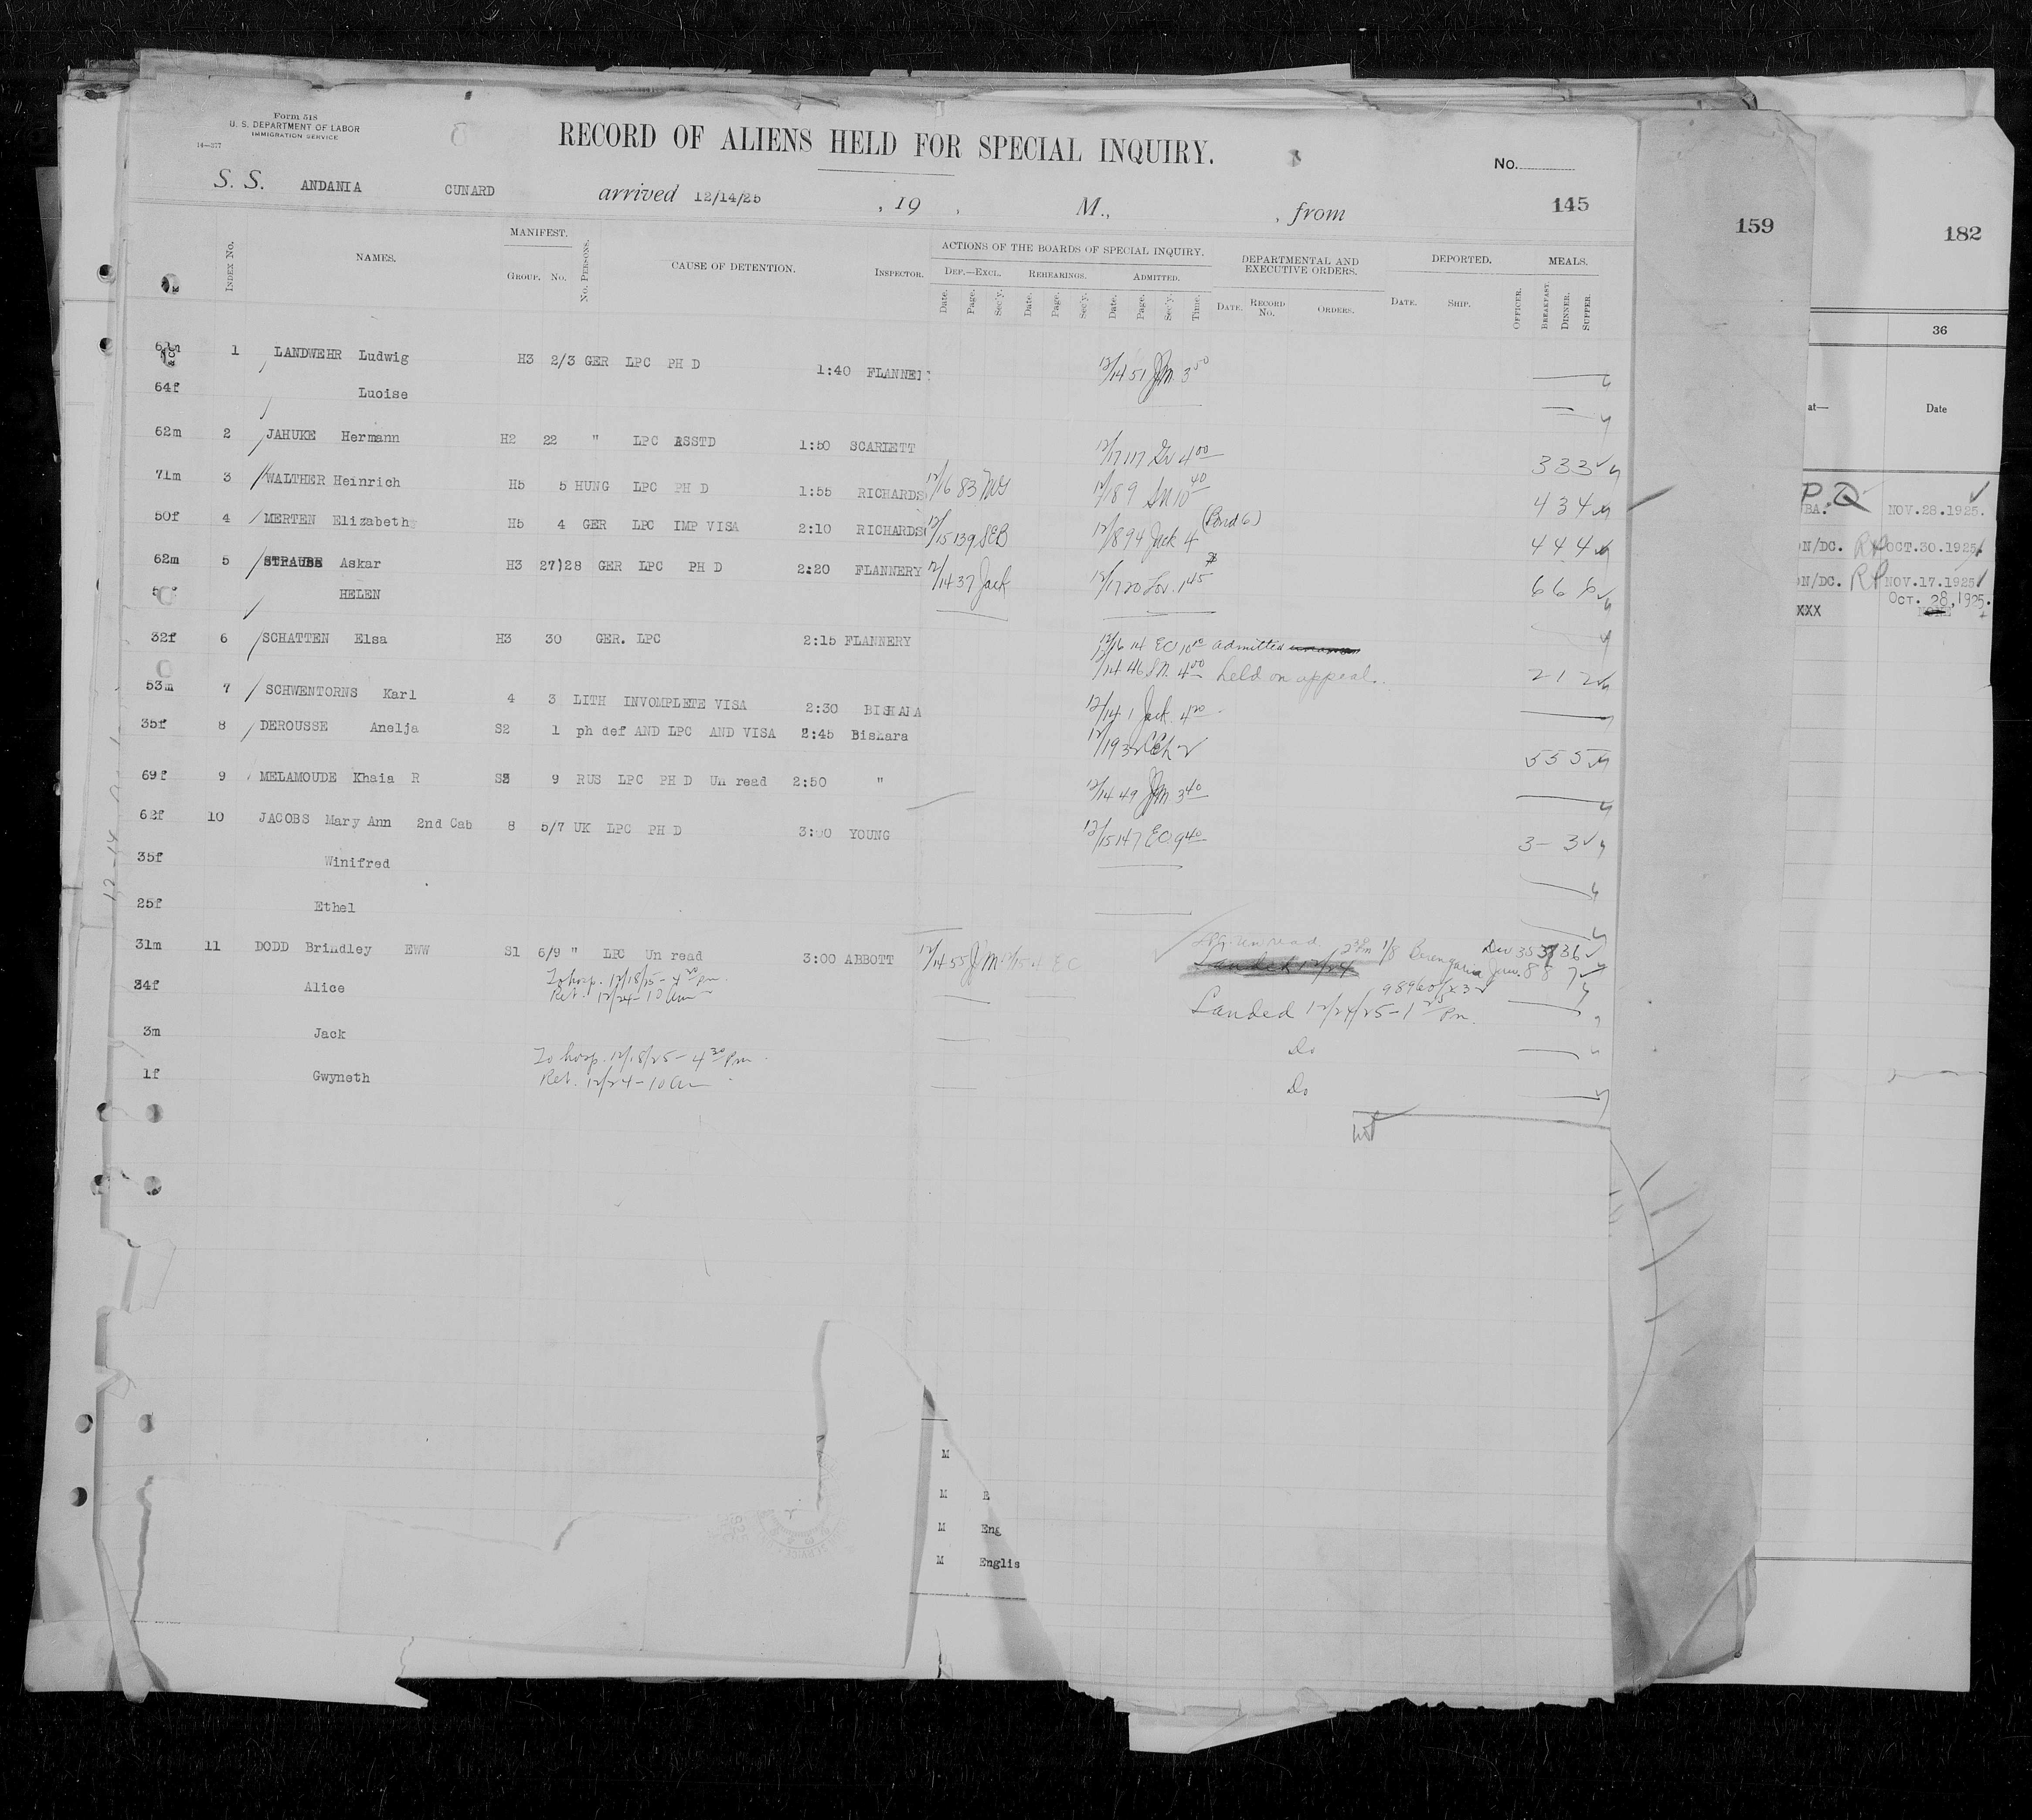 Form 518
U. S. DEPARTMENT OF LABOR
IMMIGRATION SERVICE
14—377
RECORD OF ALIENS HELD FOR SPECIAL INQUIRY.
No.
S. S. ANDANIA CUNARD arrived 12/14/25 , 19 , M., , from 145
159
182
INDEX No. NAMES. MANIFEST. GROUP. No. No. PERSONS. CAUSE OF DETENTION. INSPECTOR.
ACTIONS OF THE BOARDS OF SPECIAL INQUIRY.
DEF.—EXCL. REHEARINGS. ADMITTED.
Date. Page. Sec'y. Date. Page. Sec'y. Date. Page. Sec'y. Time.
DEPARTMENTAL AND EXECUTIVE ORDERS.
DATE. RECORD No. ORDERS.
DEPORTED.
DATE. SHIP. OFFICER.
MEALS.
BREAKFAST. DINNER. SUPPER.
1 LANDWEHR Ludwig H3 2/3 GER LPC PH D 1:40 12/14 51 JM 3 50
64f Luoise
62m 2 JAHUKE Hermann H2 22 " LPC ASSTD 1:50 SCARLETT 12/17 117 4 00 3 3 3
71m 3 WALTHER Heinrich H5 5 HUNG LPC PH D 1:55 RICHARDS 12/16 83 12/18 9 SN 10 40 4 3 4
50f 4 MERTEN Elizabeth H5 4 GER LPC IMP VISA 2:10 RICHARDS 12/15 139 SEB 12/18 94 Jack 4 (Bond 6) 4 4 4
62m 5 STRAUSS Askar H3 27)28 GER LPC PH D 2:20 FLANNERY 12/14 37 Jack 12/17 20 Lov. 1 45 6 6 6
HELEN
32f 6 SCHATTEN Elsa H3 30 GER. LPC 2:15 FLANNERY 12/16 14 EO 10 admitted
12/14 46 SN. 4 00 held on appeal. 2 1 2
53m 7 SCHWENTORNS Karl 4 3 LITH INVOMPLETE VISA 2:30 BISKARA 12/14 1 Jack. 4 20
35f 8 DEROUSSE Anelja S2 1 ph def AND LPC AND VISA 2:45 Biskara 12/19 5 5 5
69f 9 MELAMOUDE Khaia R 9 RUS LPC PH D Un read 2:50 " 12/14 49 JM 3 40
62f 10 JACOBS Mary Ann 2nd Cab 8 5/7 UK LPC PH D 3:00 YOUNG 12/15 147 EO 9 40 3 – 3
35f Winifred
25f Ethel
31m 11 DODD Brindley EWW S1 6/9 " LPC Un read 3:00 ABBOTT 12/14 55 JM LPC. Un read. 1/8 Berengaria
Landed 12/24
34f Alice To hosp. 12/18/25 – 4 30 pm.
Ret. 12/24 – 10 am
Landed 12/24/25 – 1 25 Pm.
3m Jack Do
1f Gwyneth To hosp. 12/18/25 – 4 30 Pm.
Ret. 12/24 – 10 am Do
M
M E
M Eng
M Englis
36
at—
Date
P.D.
BA. NOV.28.1925.
ON/DC. RP OCT.30.1925
ON/DC. RP NOV.17.1925
OCT. 28, 1925.
XXX